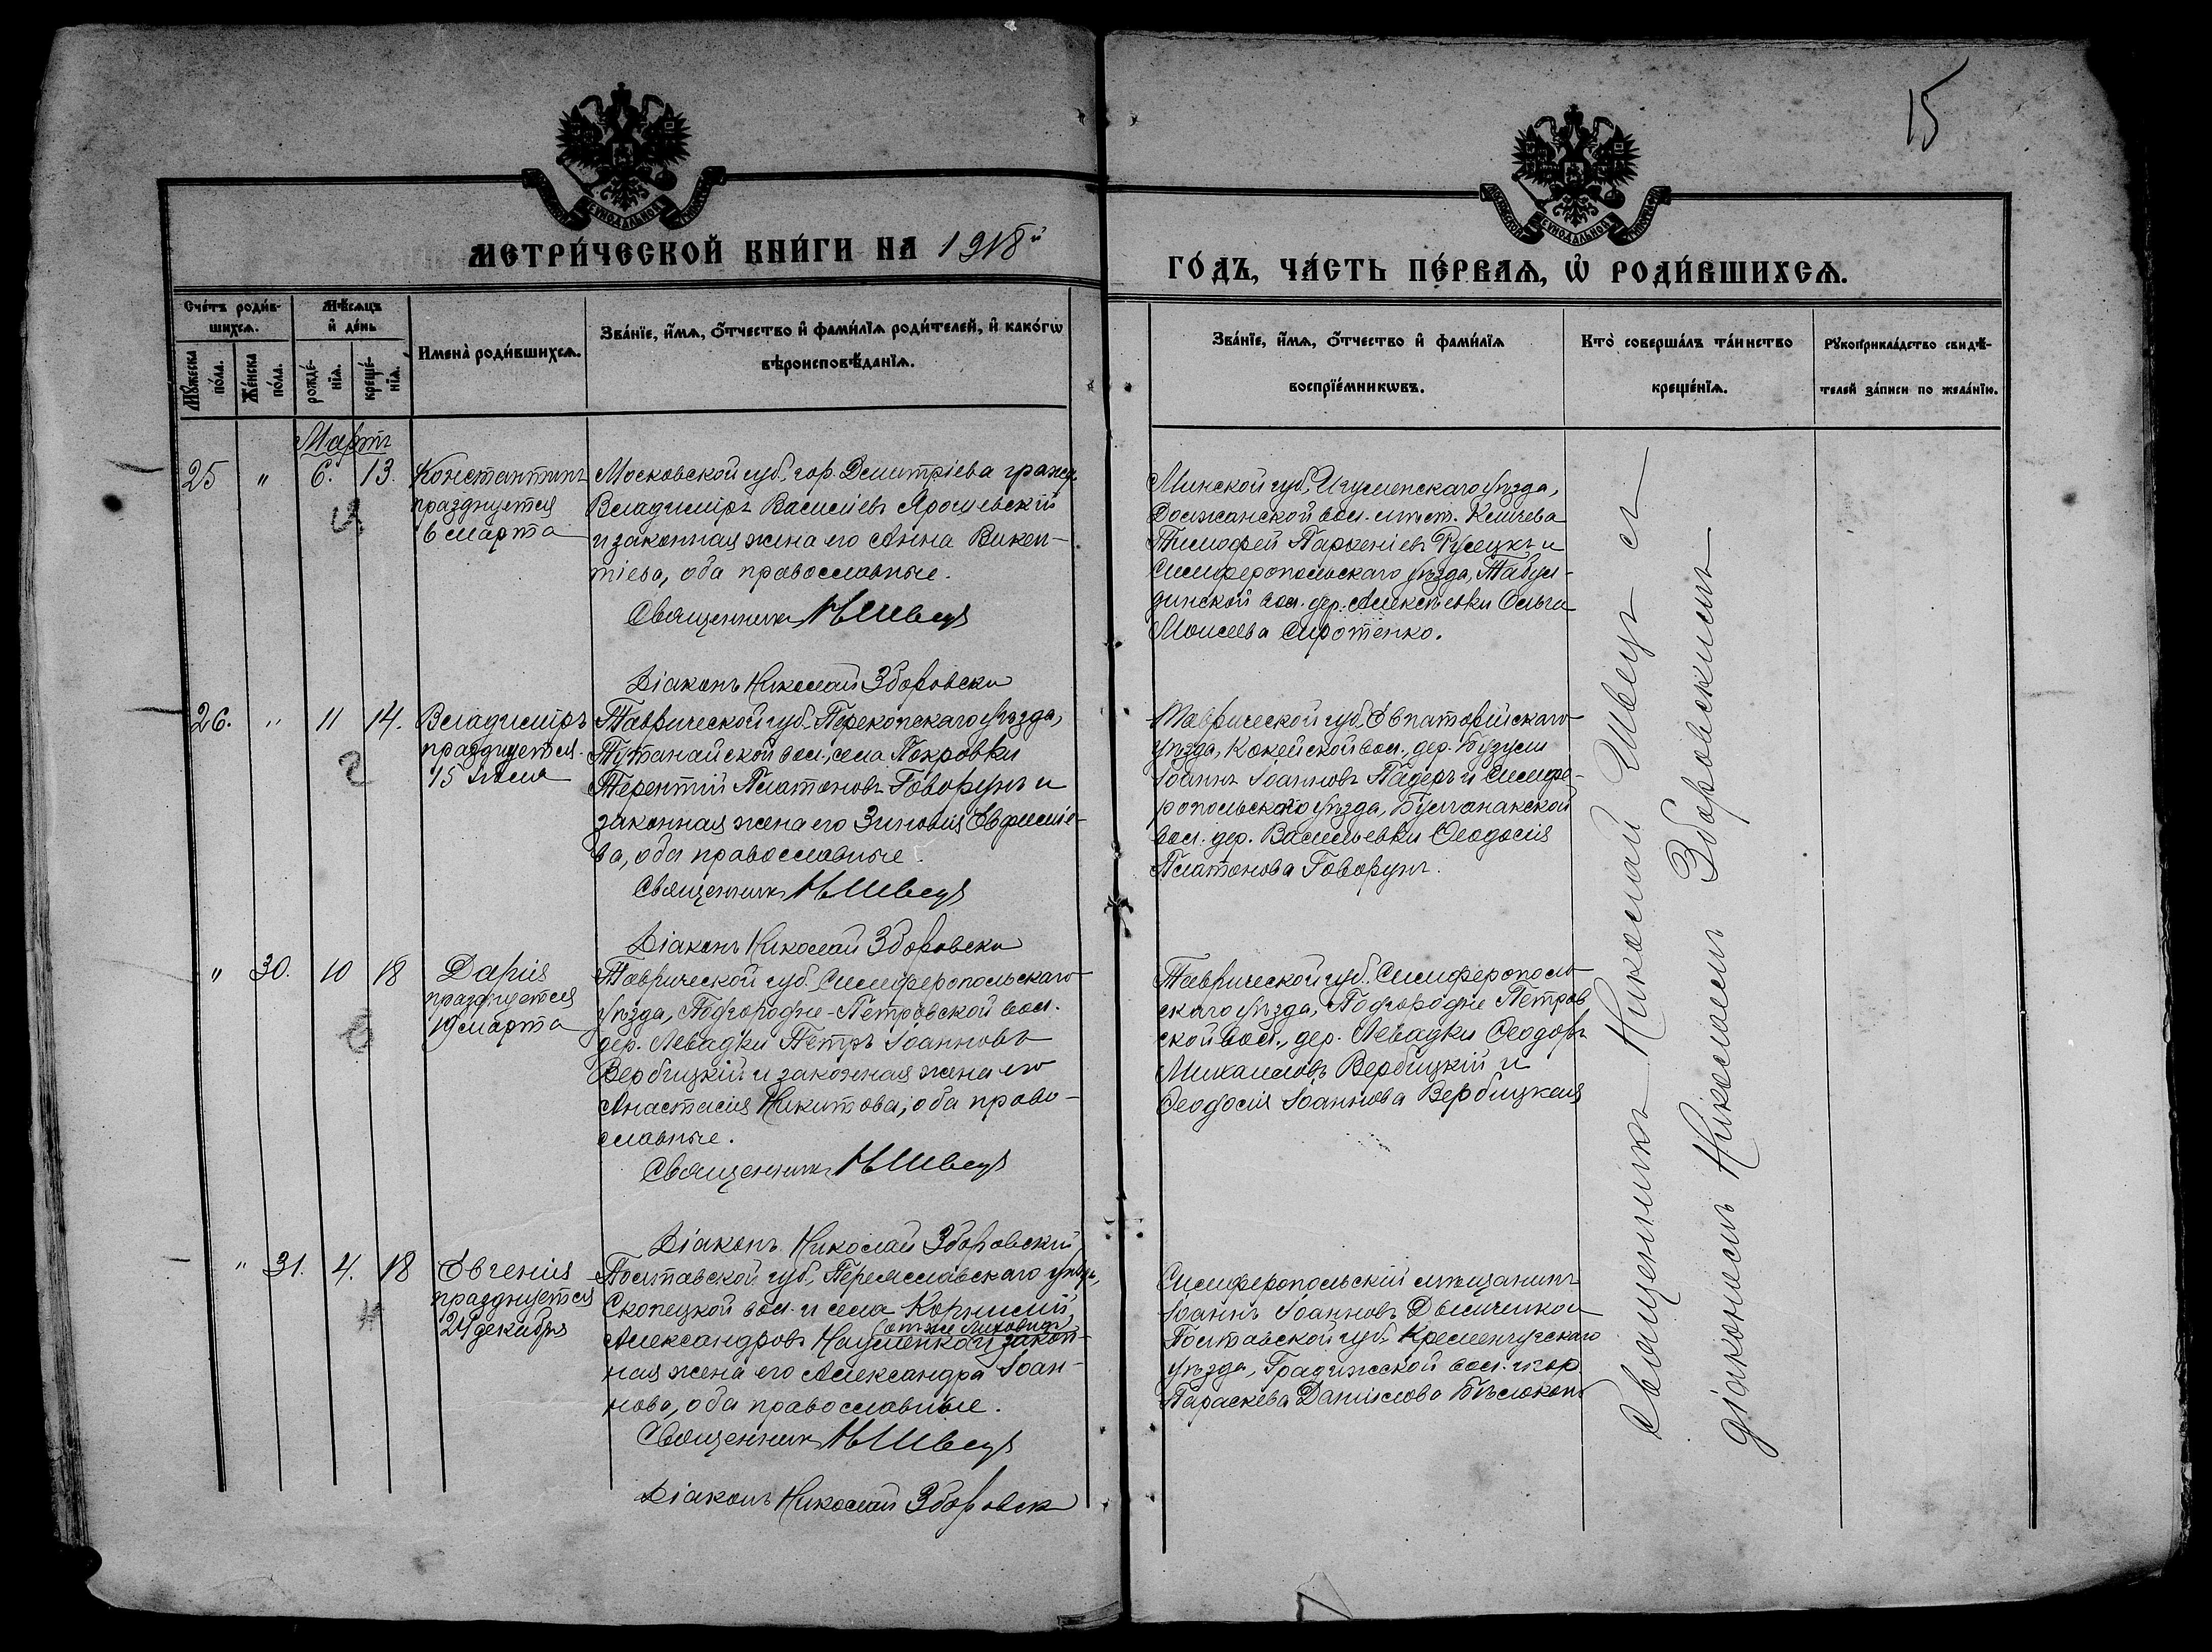 15
МЕТРИ́ЧЕСКОЙ КНИ́ГИ НА 1918й
ГО́ДЪ, ЧА́СТЬ ПЕ́РВАѦ, Ѡ҆ РОДИ́ВШИХСѦ.
Сче́тъ роди́в-
шихсѧ.
Мѣ́сѧцъ
и҆ де́нь
Мꙋ́жеска
по́ла.
Же́нска
по́ла.
рожде́-
нїѧ.
креще́-
нїѧ.
Имена̀ роди́вшихсѧ.
Зва́нїе, и҆́мѧ, ѻ҆́тчество и҆ фами́лїѧ роди́телей, и҆ како́гѡ
вѣроисповѣ́данїѧ.
Зва́нїе, и҆́мѧ, ѻ҆́тчество и҆ фами́лїѧ
воспрїе́мникѡвъ.
Кто̀ соверша́лъ та́инство
креще́нїѧ.
Рꙋкоприкла́дство свидѣ́-
телей за́писи по жела́нїю.
Мартъ
25 " 6. 13.
Константинъ
празднуется
6 марта
Московской губ., гор. Дмитріева гражд.
Владиміръ Василіевъ Ярошевскій
и законная жена его Анна Викен-
тіева, оба православные.
Священникъ Н Швецъ
Діаконъ Николай Зборовски
Минской губ., Игуменскаго уѣзда,
Должанской вол. мѣст. Кличева
Тимофей Парѳеніевъ Русецкъ и
Симферопольскаго уѣзда, Табул-
динской вол. дер. Алексѣевки Ольга
Моисеева Сиротенко.
26. " 11 14.
Владиміръ
празднуется
15 іюля
Таврической губ. Перекопскаго уѣзда,
вол., села Покровки
Терентій Платоновъ Говорунъ и
законная жена его Зиновія Евфиміе-
ва, оба православные.
Священникъ Н Швецъ
Діаконъ Николай Зборовски
Таврической губ., Евпаторійскаго
уѣзда, вол. дер. Бузулы
Іоаннъ Іоанновъ Падеръ и Симфе-
ропольскаго уѣзда, Булганакской
вол. дер. Васильевки Ѳеодосія
Платонова Говорунъ.
" 30. 10 18
Дарія
празднуется
19 марта
Таврической губ. Симферопольскаго
уѣзда, Подгородне-Петровской вол.
дер. Левадки Петръ Іоанновъ
Вербицкій и законная жена его
Анастасія Никитова, оба право-
славные.
Священникъ Н Швецъ
Діаконъ Николай Зборовскій
Таврической губ. Симферополь-
скаго уѣзда, Подгородне Петров
ской вол., дер. Левадки Ѳеодоръ
Михаиловъ Вербицкій и
Ѳеодосія Іоаннова Вербицкая
" 31. 4. 18
Евгенія
празднуется
24 декабря
Полтавской губ., Переяславскаго уѣзда,
Скопецкой вол. и села Корнилій
Александровъ Науменко (онъ же Лиховидъ) и закон-
ная жена его Александра Іоан-
нова, оба православные.
Священникъ Н Швецъ
Діаконъ Николай Зборовск
Симферопольскій мѣщанинъ
Іоаннъ Іоанновъ и
Полтавской губ., Кременчугскаго
уѣзда, Градижской вол. и гор.
Параскева Даніилова Бѣлоконь
Священникъ Николай Швецъ съ
діакономъ Николаемъ Зборовскимъ